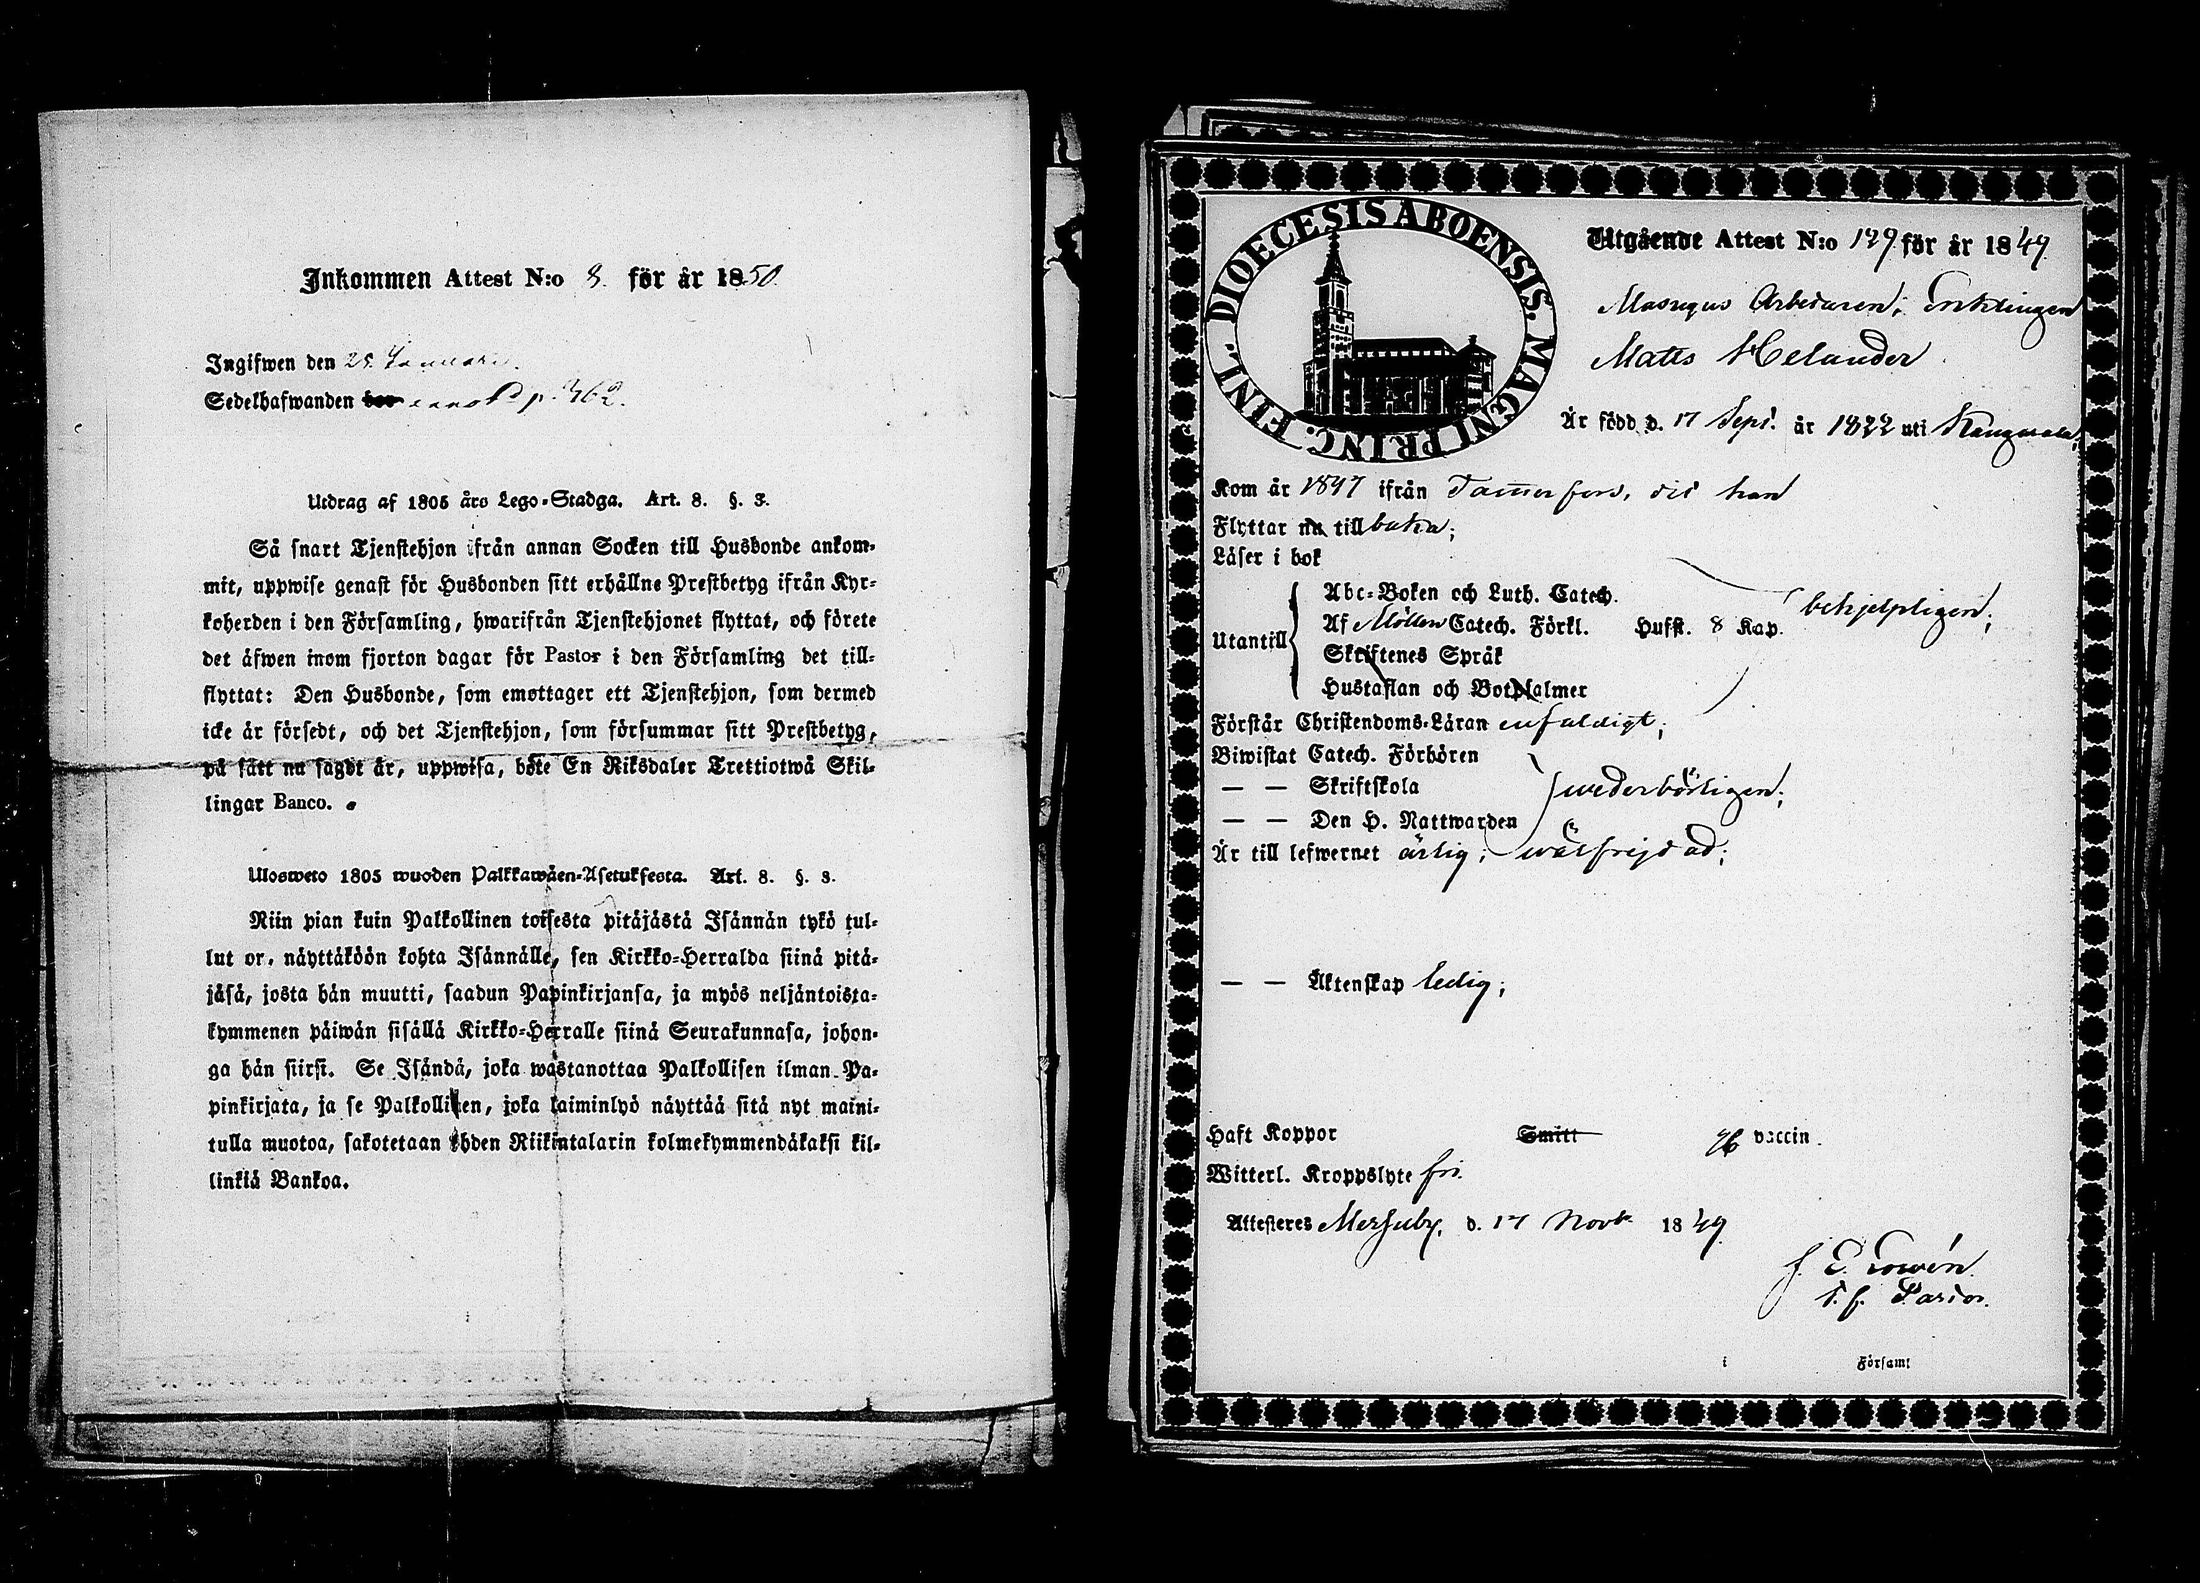 Inkommen Attest N:o 8. för år 1850.
Ingifwen den 25 Januari.
Sedelhafwanden p. 362.
Utdrag af 1805 års Lego-Stadga. Art. 8. §. 3.
Så snart Tjenstehjon ifrån annan Socken till Husbonde ankom-
mit, uppwise genast för Husbonden sitt erhållne Prestbetyg ifrån Kyr-
koherden i den Församling, hwarifrån Tjenstehjonet flyttat, och förete
det äfwen inom fjorton dagar för Pastor i den Församling det till-
flyttat: Den Husbonde, som emottager ett Tjenstehjon, som dermed
icke är försedt, och det Tjenstehjon, som försummar sitt Prestbetyg,
på sätt nu sagdt är, uppwisa, böte En Riksdaler Trettiotwå Skil-
lingar Banco.
Ulosweto 1805 wuoden Palkkawäen-Asetuksesta. Art. 8. §. 3.
Niin pian kuin Palkollinen toisesta pitäjästä Isännän tykö tul-
lut on, näyttäköön kohta Isännälle, sen Kirkko-Herralda siinä pitä-
jäsä, josta hän muutti, saadun Papinkirjansa, ja myös neljäntoista-
kymmenen päiwän sisällä Kirkko-Herralle siinä Seurakunnasa, johon-
ga hän siirsi. Se Isändä, joka wastanottaa Palkollisen ilman Pa-
pinkirjata, ja se Palkollinen, joka laiminlyö näyttää sitä nyt maini-
tulla muotoa, sakotetaan yhden Riikintalarin kolmekymmendäkaksi kil-
linkiä Bankoa.
DIOECESIS ABOENSIS. MAGNI PRINC. FINL.
Utgående Attest N:o 129 för år 1849.
Arbetaren, Enklingen
Matts Helander
Är född d. 17 Sept. år 1822 uti Kangasala;
Kom år 1847 ifrån Tammerfors, dit han
Flyttar nu tillbaka;
Läser i bok
Abc-Boken och Luth. Catech.
Utantill Af Möllers Catech. Förkl. Hufst. 8 Kap. behjelpligen;
Skriftenes Språk
Hustaflan och Botpsalmer
Förstår Christendoms-Läran enfaldigt;
Biwistat Catech. Förhören
— — Skriftskola wederbörligen;
— — Den H. Nattwarden
Är till lefwernet ärlig; wälfrejdad;
— — Äktenskap ledig;
Haft Koppor Smitt vaccin.
Witterl. Kroppslyte fri.
Attesteres Messuby, d. 17 Novb. 1849.
J. E. Lowén.
t. f. Pastor.
i Församl